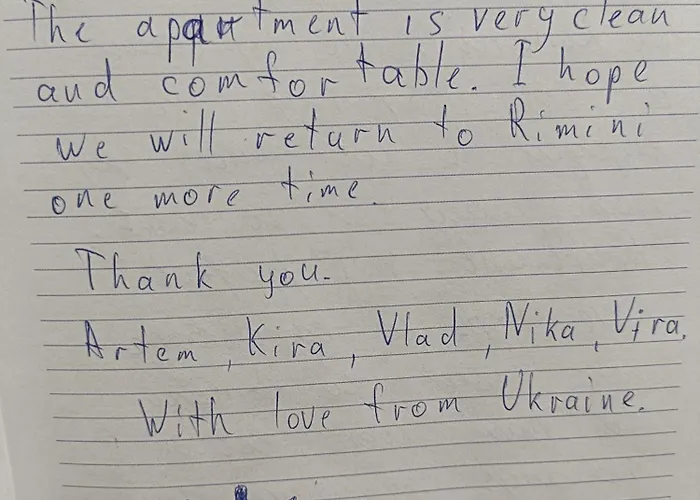 The apartment is very clean
and comfortable. I hope
we will return to Rimini
one more time.
Thank you.
Artem, Kira, Vlad, Nika, Vira.
With love from Ukraine.